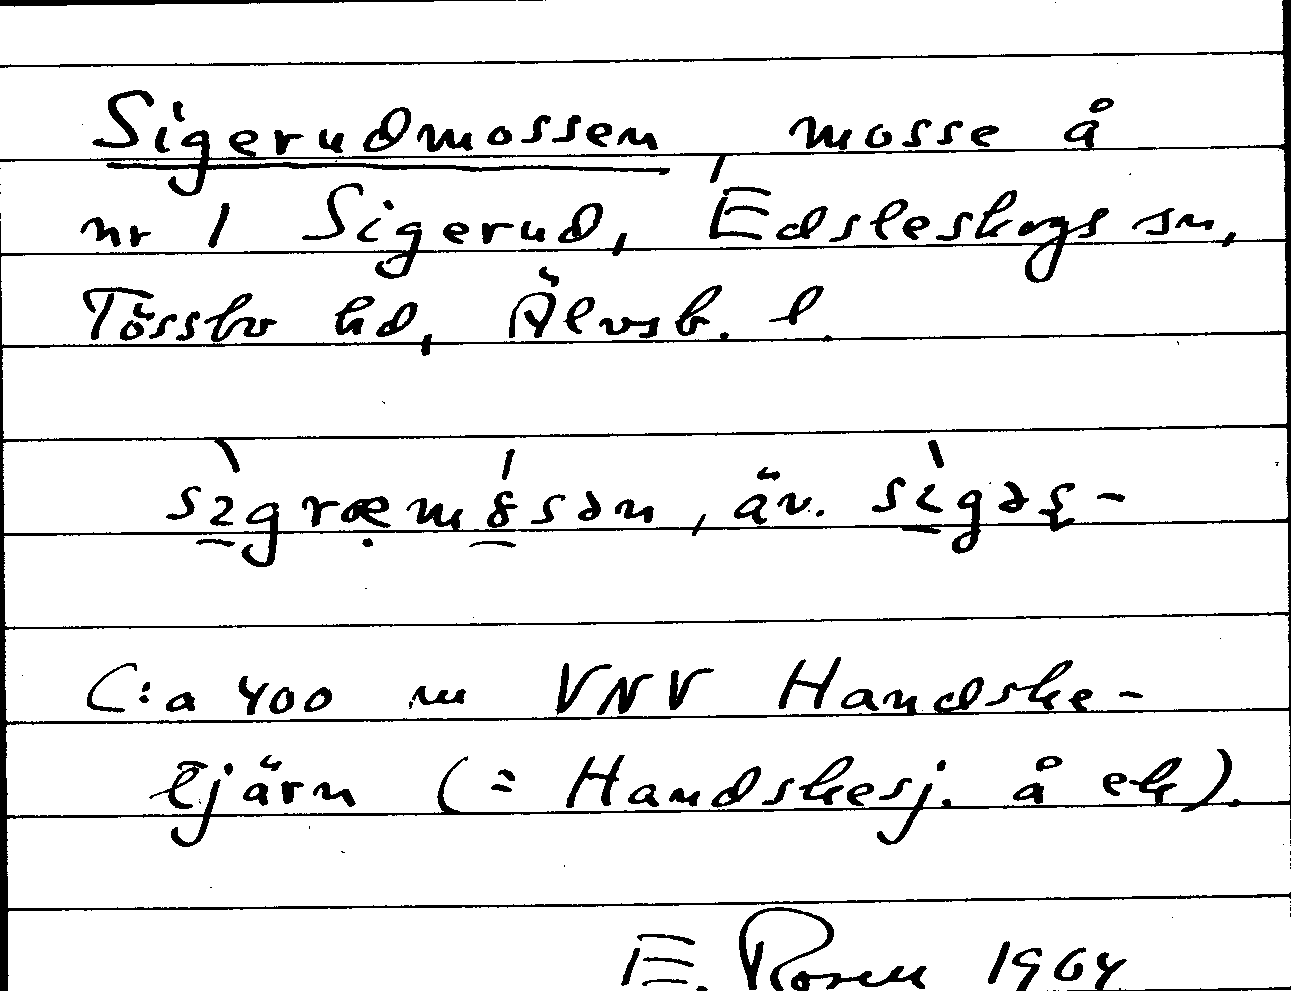 Sigerudmossen, mosse å
nr 1 Sigerud, Edsleskogs sn,
Tössbo hd, Älvsb. l.
sìgræmósən, äv. sìgəş-
C:a 400 m VNV Handske-
tjärn (= Handskesj. å ek).
E. Rosen 1964